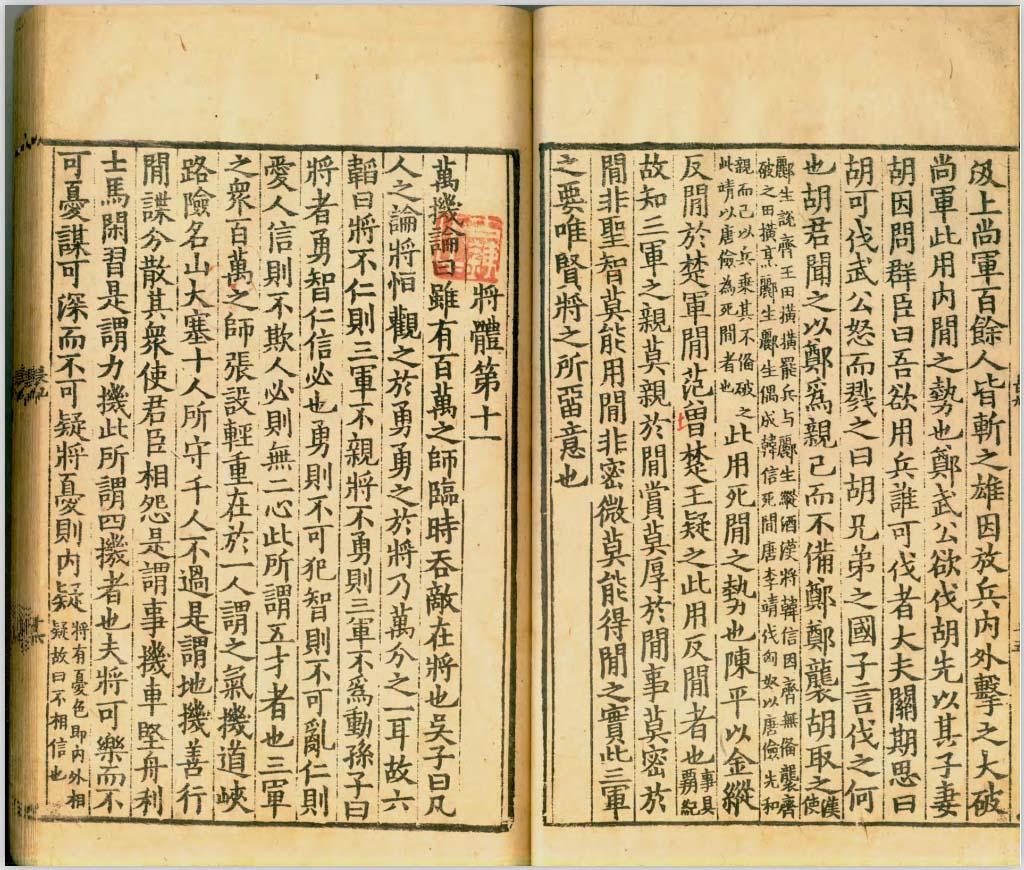 汲上尚軍百餘人皆斬之雄因放兵内外擊之大破
尚軍此用内閒之勢也鄭武公欲伐胡先以其子妻
胡因問群臣曰吾欲用兵誰可伐者大夫關期思曰
胡可伐武公怒而戮之曰胡兄弟之國子言伐之何
也胡君聞之以鄭爲親己而不備鄭鄭襲胡取之漢使
酈生說齊王田橫橫罷兵与酈生縱酒漢將韓信因齊無俻襲齊
破之田橫烹酈生酈生偶成韓信死間唐李靖伐匈奴以唐儉先和
親而己以兵乘其不俻破之
此靖以唐儉為死間者也
此用死閒之勢也陳平以金縱
反閒於楚軍閒范曽楚王疑之此用反閒者也事具霸紀
故知三軍之親莫親於閒賞莫厚於閒事莫密於
閒非聖智莫能用閒非密微莫能得閒之實此三軍
之要唯賢將之所留意也
將體第十一
萬機論曰雖有百萬之師臨時吞敵在將也吳子曰凡
人之論將恒觀之於勇勇之於將乃萬分之一耳故六
韜曰將不仁則三軍不親將不勇則三軍不爲動孫子曰
將者勇智仁信必也勇則不可犯智則不可亂仁則
愛人信則不欺人必則無二心此所謂五才者也三軍
之衆百萬之師張設輕重在於一人謂之氣機道峽
路險名山大塞十人所守千人不過是謂地機善行
閒諜分散其衆使君臣相怨是謂事機車堅舟利
士馬閑習是謂力機此所謂四機者也夫將可樂而不
可憂謀可深而不可疑將憂則内疑
將有憂色即内外相
疑故曰不相信也